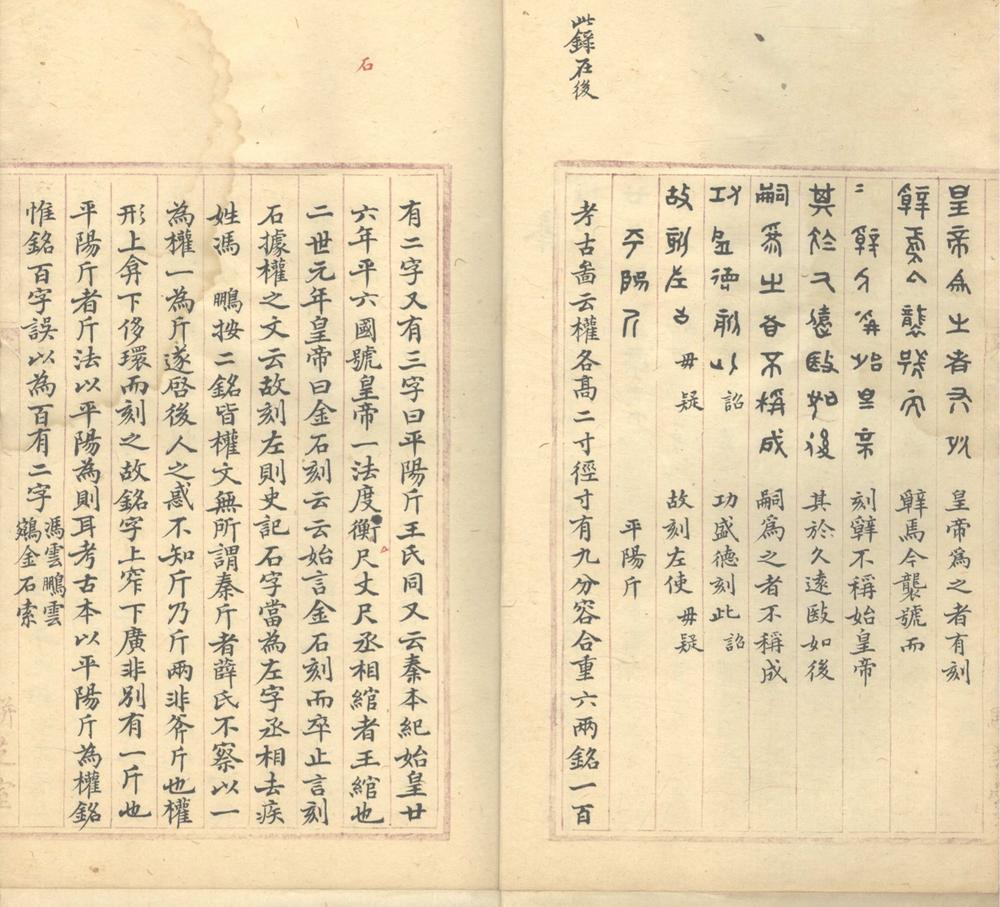 此錄在後
皇帝為之者有刻 皇帝爲之者有刻
辭焉今襲號而 辭馬今襲號而
二辭不稱始皇帝 刻辭不稱始皇帝
其於久遠殹如後 其於久遠殹如後
嗣爲之者不稱成 嗣爲之者不稱成
功盛德刻此 詔 功盛德刻此 詔
故刻左使 毋疑 故刻左使 毋疑
平陽斤 平陽斤
考古啚云權各髙二寸徑寸有九分容合重六兩銘一百
石
有二字又有三字曰平陽斤王氏同又云秦本紀始皇廿
六年平六國號皇帝一法度衡尺丈尺丞相綰者王綰也
二世元年皇帝曰金石刻云云始言金石刻而卒止言刻
石據權之文云故刻左則史記石字當為左字丞相去疾
姓馮 鵬按二銘皆權文無所謂秦斤者薛氏不察以一
為權一為斤遂啓後人之惑不知斤乃斤兩非斧斤也權
形上弇下侈環而刻之故銘字上窄下廣非別有一斤也
平陽斤者斤法以平陽為則耳考古本以平陽斤為權銘
惟銘百字誤以為百有二字
馮雲鵬雲
鵷金石索